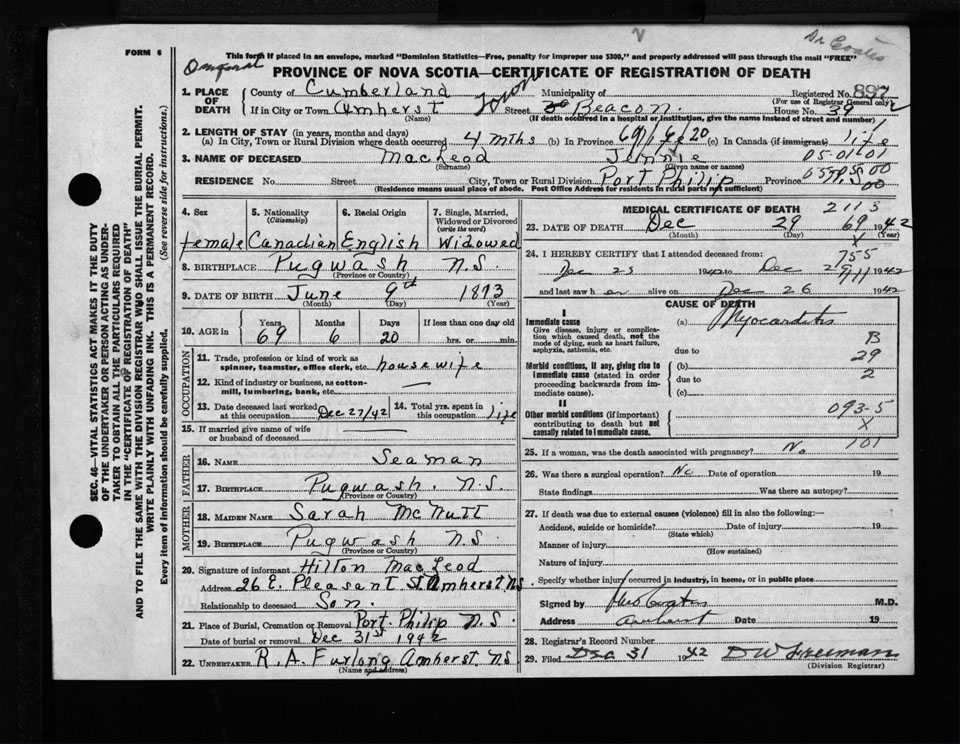 FORM 6
Dr Coates
This form if placed in an envelope, marked "Dominion Statistics—Free, penalty for improper use $300," and properly addressed will pass through the mail "FREE"
PROVINCE OF NOVA SCOTIA—CERTIFICATE OF REGISTRATION OF DEATH
1. PLACE OF DEATH
County of Cumberland Municipality of Registered No. 897
(For use of Registrar General only)
If in City or Town Amherst Town Street Beacon. House No. 39
(Name) (If death occurred in a hospital or institution, give the name instead of street and number)
2. LENGTH OF STAY (in years, months and days)
(a) In City, Town or Rural Division where death occurred 4 mths (b) In Province 69/6/20 (c) In Canada (if immigrant) life
3. NAME OF DECEASED MacLeod Jennie 05-01-01
(Surname) (Given name or names)
RESIDENCE No. Street City, Town or Rural Division Port Philip Province N.S.
(Residence means usual place of abode. Post Office Address for residents in rural parts not sufficient)
4. Sex female
5. Nationality (Citizenship) Canadian
6. Racial Origin English
7. Single, Married, Widowed or Divorced (write the word) Widowed
8. BIRTHPLACE Pugwash N.S.
(Province or Country)
9. DATE OF BIRTH June 9th 1873
(Month) (Day) (Year)
10. AGE in Years 69 Months 6 Days 20 If less than one day old hrs. or min.
OCCUPATION
11. Trade, profession or kind of work as spinner, teamster, office clerk, etc. housewife
12. Kind of industry or business, as cotton-mill, lumbering, bank, etc. —
13. Date deceased last worked at this occupation Dec 27/42
14. Total yrs. spent in this occupation life
15. If married give name of wife or husband of deceased —
FATHER
16. NAME Seaman
17. BIRTHPLACE Pugwash. N.S.
(Province or Country)
MOTHER
18. MAIDEN NAME Sarah McNutt
19. BIRTHPLACE Pugwash N.S.
(Province or Country)
20. Signature of informant Hilton MacLeod
Address 26 E. Pleasant St Amherst N.S.
Relationship to deceased Son.
21. Place of Burial, Cremation or Removal Port Philip N.S.
Date of burial or removal Dec 31st 1942
22. UNDERTAKER R. A. Furlong Amherst N.S.
(Name and address)
MEDICAL CERTIFICATE OF DEATH 2113
23. DATE OF DEATH Dec 29 1942
(Month) (Day) (Year)
24. I HEREBY CERTIFY that I attended deceased from:
Dec 23 1942 to Dec 1942
and last saw her alive on Dec 26 1942
CAUSE OF DEATH
I
Immediate cause (a) Myocarditis
Give disease, injury or complication which caused death, not the mode of dying, such as heart failure, asphyxia, asthenia, etc.
due to
B
29
2
Morbid conditions, if any, giving rise to immediate cause (stated in order proceeding backwards from immediate cause). (b)
due to
(c)
II
Other morbid conditions (if important) contributing to death but not causally related to immediate cause.
093-5
X
101
25. If a woman, was the death associated with pregnancy? No
26. Was there a surgical operation? No Date of operation 19
State findings Was there an autopsy?
27. If death was due to external causes (violence) fill in also the following:—
Accident, suicide or homicide? Date of injury 19
(State which)
Manner of injury
(How sustained)
Nature of injury
Specify whether injury occurred in industry, in home, or in public place
Signed by M.D.
Address Amherst Date 19
28. Registrar's Record Number
29. Filed Dec 31 1942 D W Freeman
(Division Registrar)
SEC. 46—VITAL STATISTICS ACT MAKES IT THE DUTY
OF THE UNDERTAKER OR PERSON ACTING AS UNDER-
TAKER TO OBTAIN ALL THE PARTICULARS REQUIRED
IN THE "CERTIFICATE OF REGISTRATION OF DEATH"
AND TO FILE THE SAME WITH THE DIVISION REGISTRAR WHO SHALL ISSUE THE BURIAL PERMIT.
WRITE PLAINLY WITH UNFADING INK. THIS IS A PERMANENT RECORD.
Every item of information should be carefully supplied. (See reverse side for instructions.)